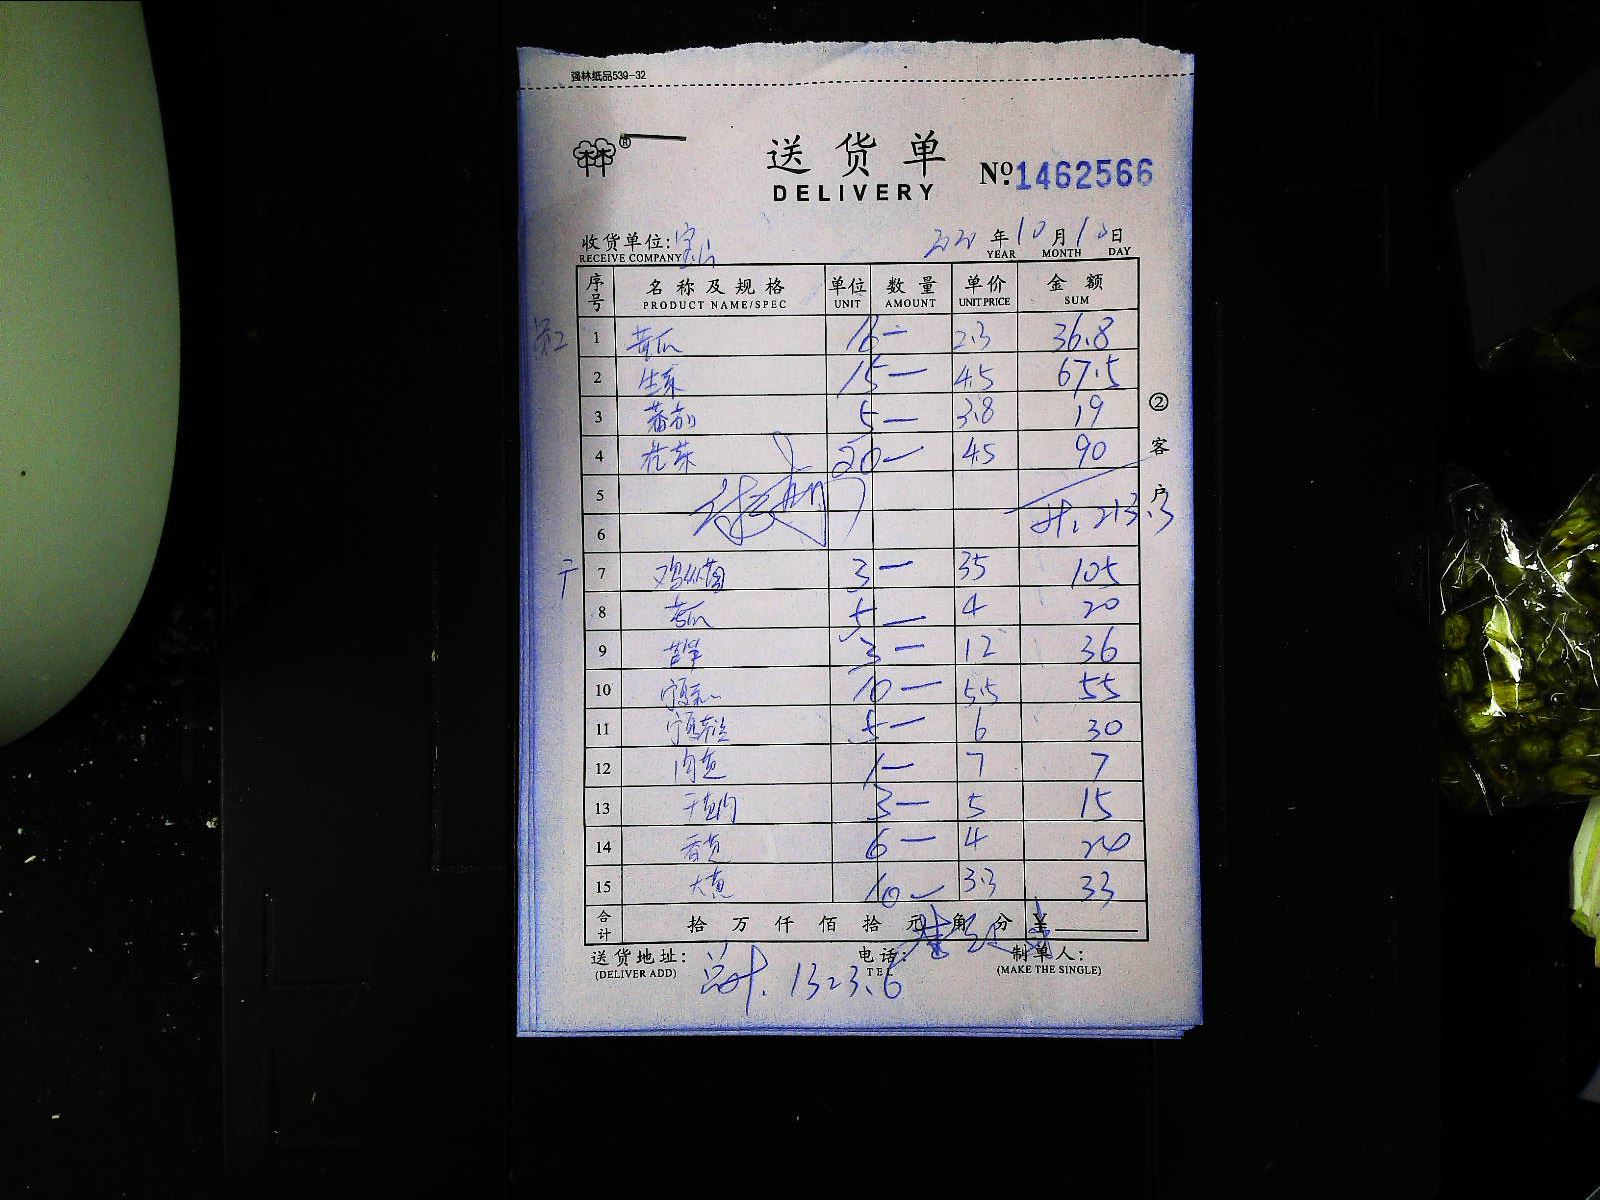 强林纸品539-32
®
送货单
DELIVERY
№ 1462566
收货单位: 年10月10日
RECEIVE COMPANY YEAR MONTH DAY
序号 名称及规格 单位 数量 单价 金额
PRODUCT NAME/SPEC UNIT AMOUNT UNIT PRICE SUM
员工 1 黄瓜 16- 2.3 36.8
2 生菜 15- 4.5 67.5
3 番茄 5- 3.8 19
4 20- 4.5 90
5
6 计. 213.3
7 3- 35 105
8 黄瓜 5- 4 20
9 3- 12 36
10 10- 5.5 55
11 5- 6 30
12 1- 7 7
13 3- 5 15
14 香芫 6- 4 24
15 大葱 10- 3.3 33
合计 拾 万 仟 佰 拾 元 角 分 ¥
②客户
送货地址: 电话: 制单人:
(DELIVER ADD) TEL (MAKE THE SINGLE)
总计. 1323.6